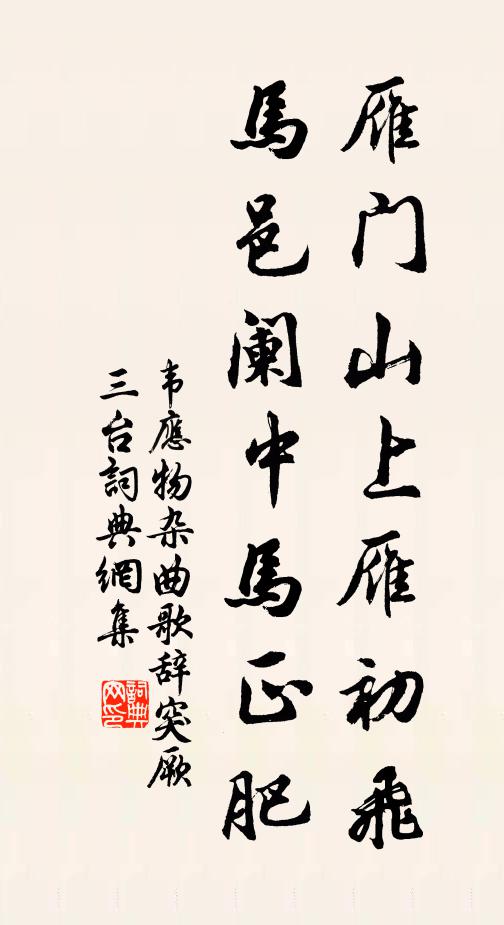 雁门山上雁初飛
馬邑阑中馬正肥
韦應物杂曲歌辞突厥
三台詞典網集
詞典网印